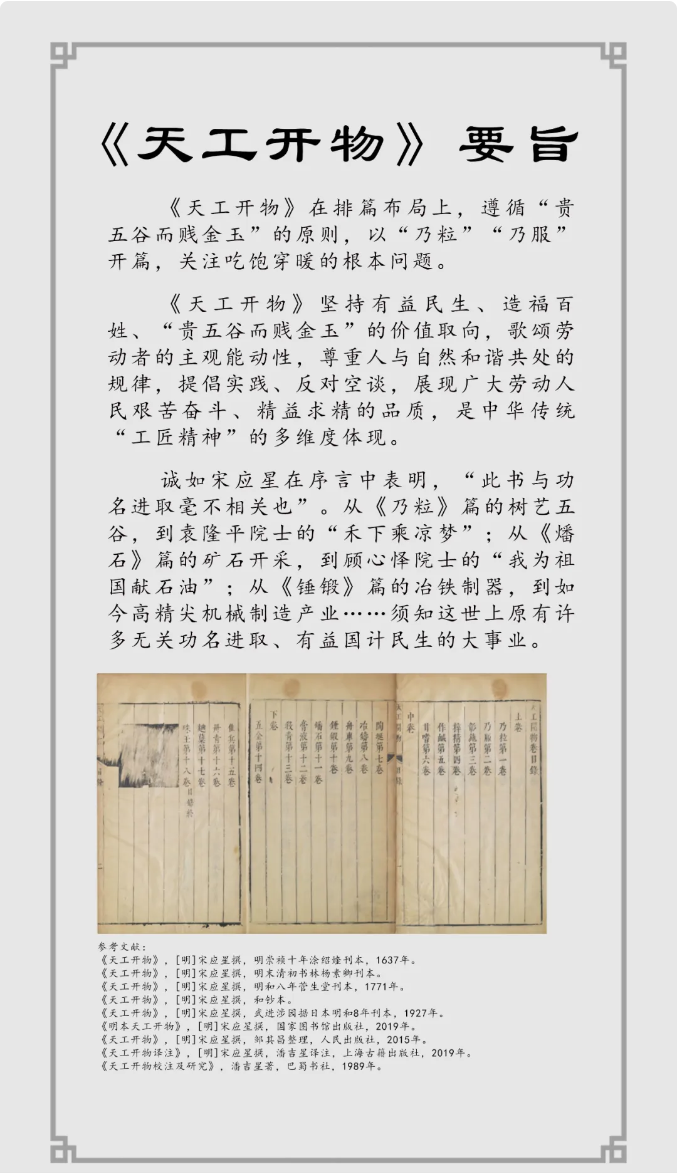 《天工开物》要旨
《天工开物》在排篇布局上，遵循“贵
五谷而贱金玉”的原则，以“乃粒”“乃服”
开篇，关注吃饱穿暖的根本问题。
《天工开物》坚持有益民生、造福百
姓、“贵五谷而贱金玉”的价值取向，歌颂劳
动者的主观能动性，尊重人与自然和谐共处的
规律，提倡实践、反对空谈，展现广大劳动人
民艰苦奋斗、精益求精的品质，是中华传统
“工匠精神”的多维度体现。
诚如宋应星在序言中表明，“此书与功
名进取毫不相关也”。从《乃粒》篇的树艺五
谷，到袁隆平院士的“禾下乘凉梦”；从《燔
石》篇的矿石开采，到顾心怿院士的“我为祖
国献石油”；从《锤锻》篇的冶铁制器，到如
今高精尖机械制造产业……须知这世上原有许
多无关功名进取、有益国计民生的大事业。
天工開物卷目錄
上卷
乃粒第一卷
乃服第二卷
彰施第三卷
粹精第四卷
作鹹第五卷
甘嗜第六卷
中卷
陶埏第七卷
冶鑄第八卷
舟車第九卷
錘鍛第十卷
燔石第十一卷
膏液第十二卷
殺青第十三卷
下卷
五金第十四卷
佳兵第十五卷
丹青第十六卷
第十七卷
珠玉第十八卷 目錄終
参考文献：
《天工开物》，[明]宋应星撰，明崇祯十年涂绍煃刊本，1637年。
《天工开物》，[明]宋应星撰，明末清初书林杨素卿刊本。
《天工开物》，[明]宋应星撰，明和八年菅生堂刊本，1771年。
《天工开物》，[明]宋应星撰，和钞本。
《天工开物》，[明]宋应星撰，武进涉园据日本明和8年刊本，1927年。
《明本天工开物》，[明]宋应星撰，国家图书馆出版社，2019年。
《天工开物》，[明]宋应星撰，邹其昌整理，人民出版社，2015年。
《天工开物译注》，[明]宋应星撰，潘吉星译注，上海古籍出版社，2019年。
《天工开物校注及研究》，潘吉星著，巴蜀书社，1989年。